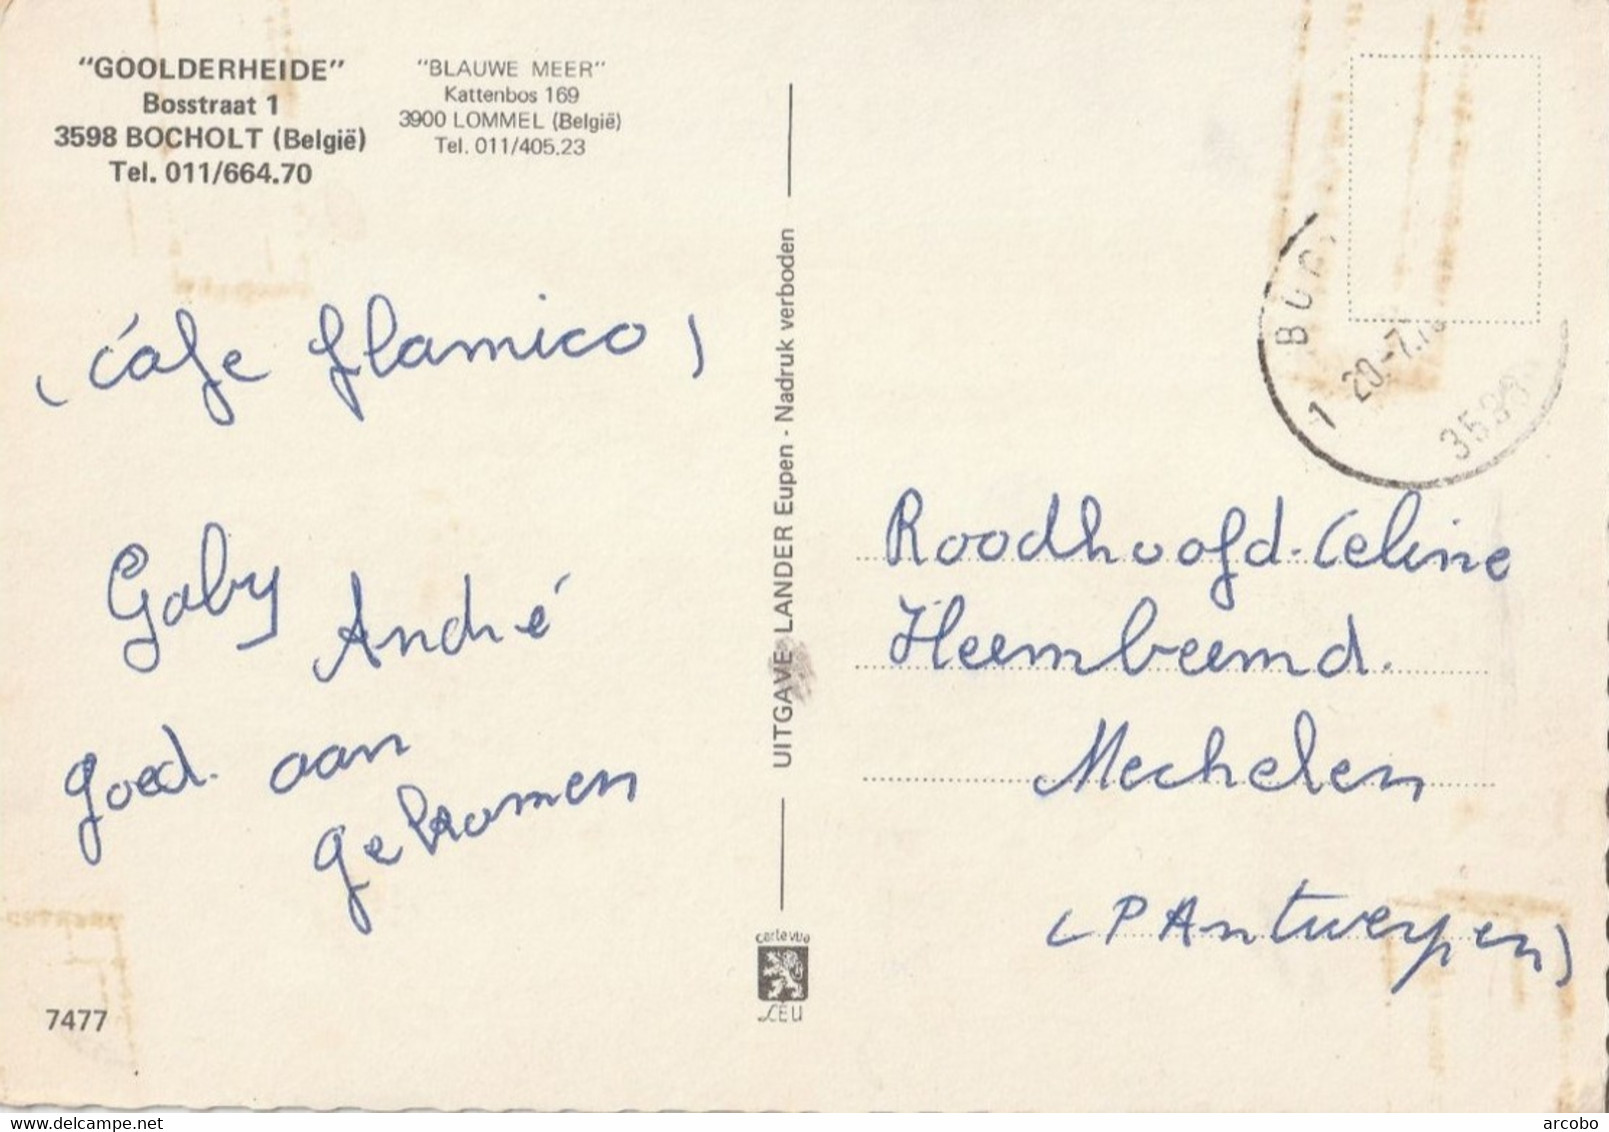 "GOOLDERHEIDE"
Bosstraat 1
3598 BOCHOLT (België)
Tel. 011/664.70
"BLAUWE MEER"
Kattenbos 169
3900 LOMMEL (België)
Tel. 011/405.23
(Cafe flamico)
Gaby André
goed. aan
gekomen
7477
UITGAVE LANDER Eupen - Nadruk verboden
carte vue
LEU
1
20-7.
Roodhoofd-Celine
Heembeemd.
Mechelen
(P Antwerpen)
delcampe.net
arcobo